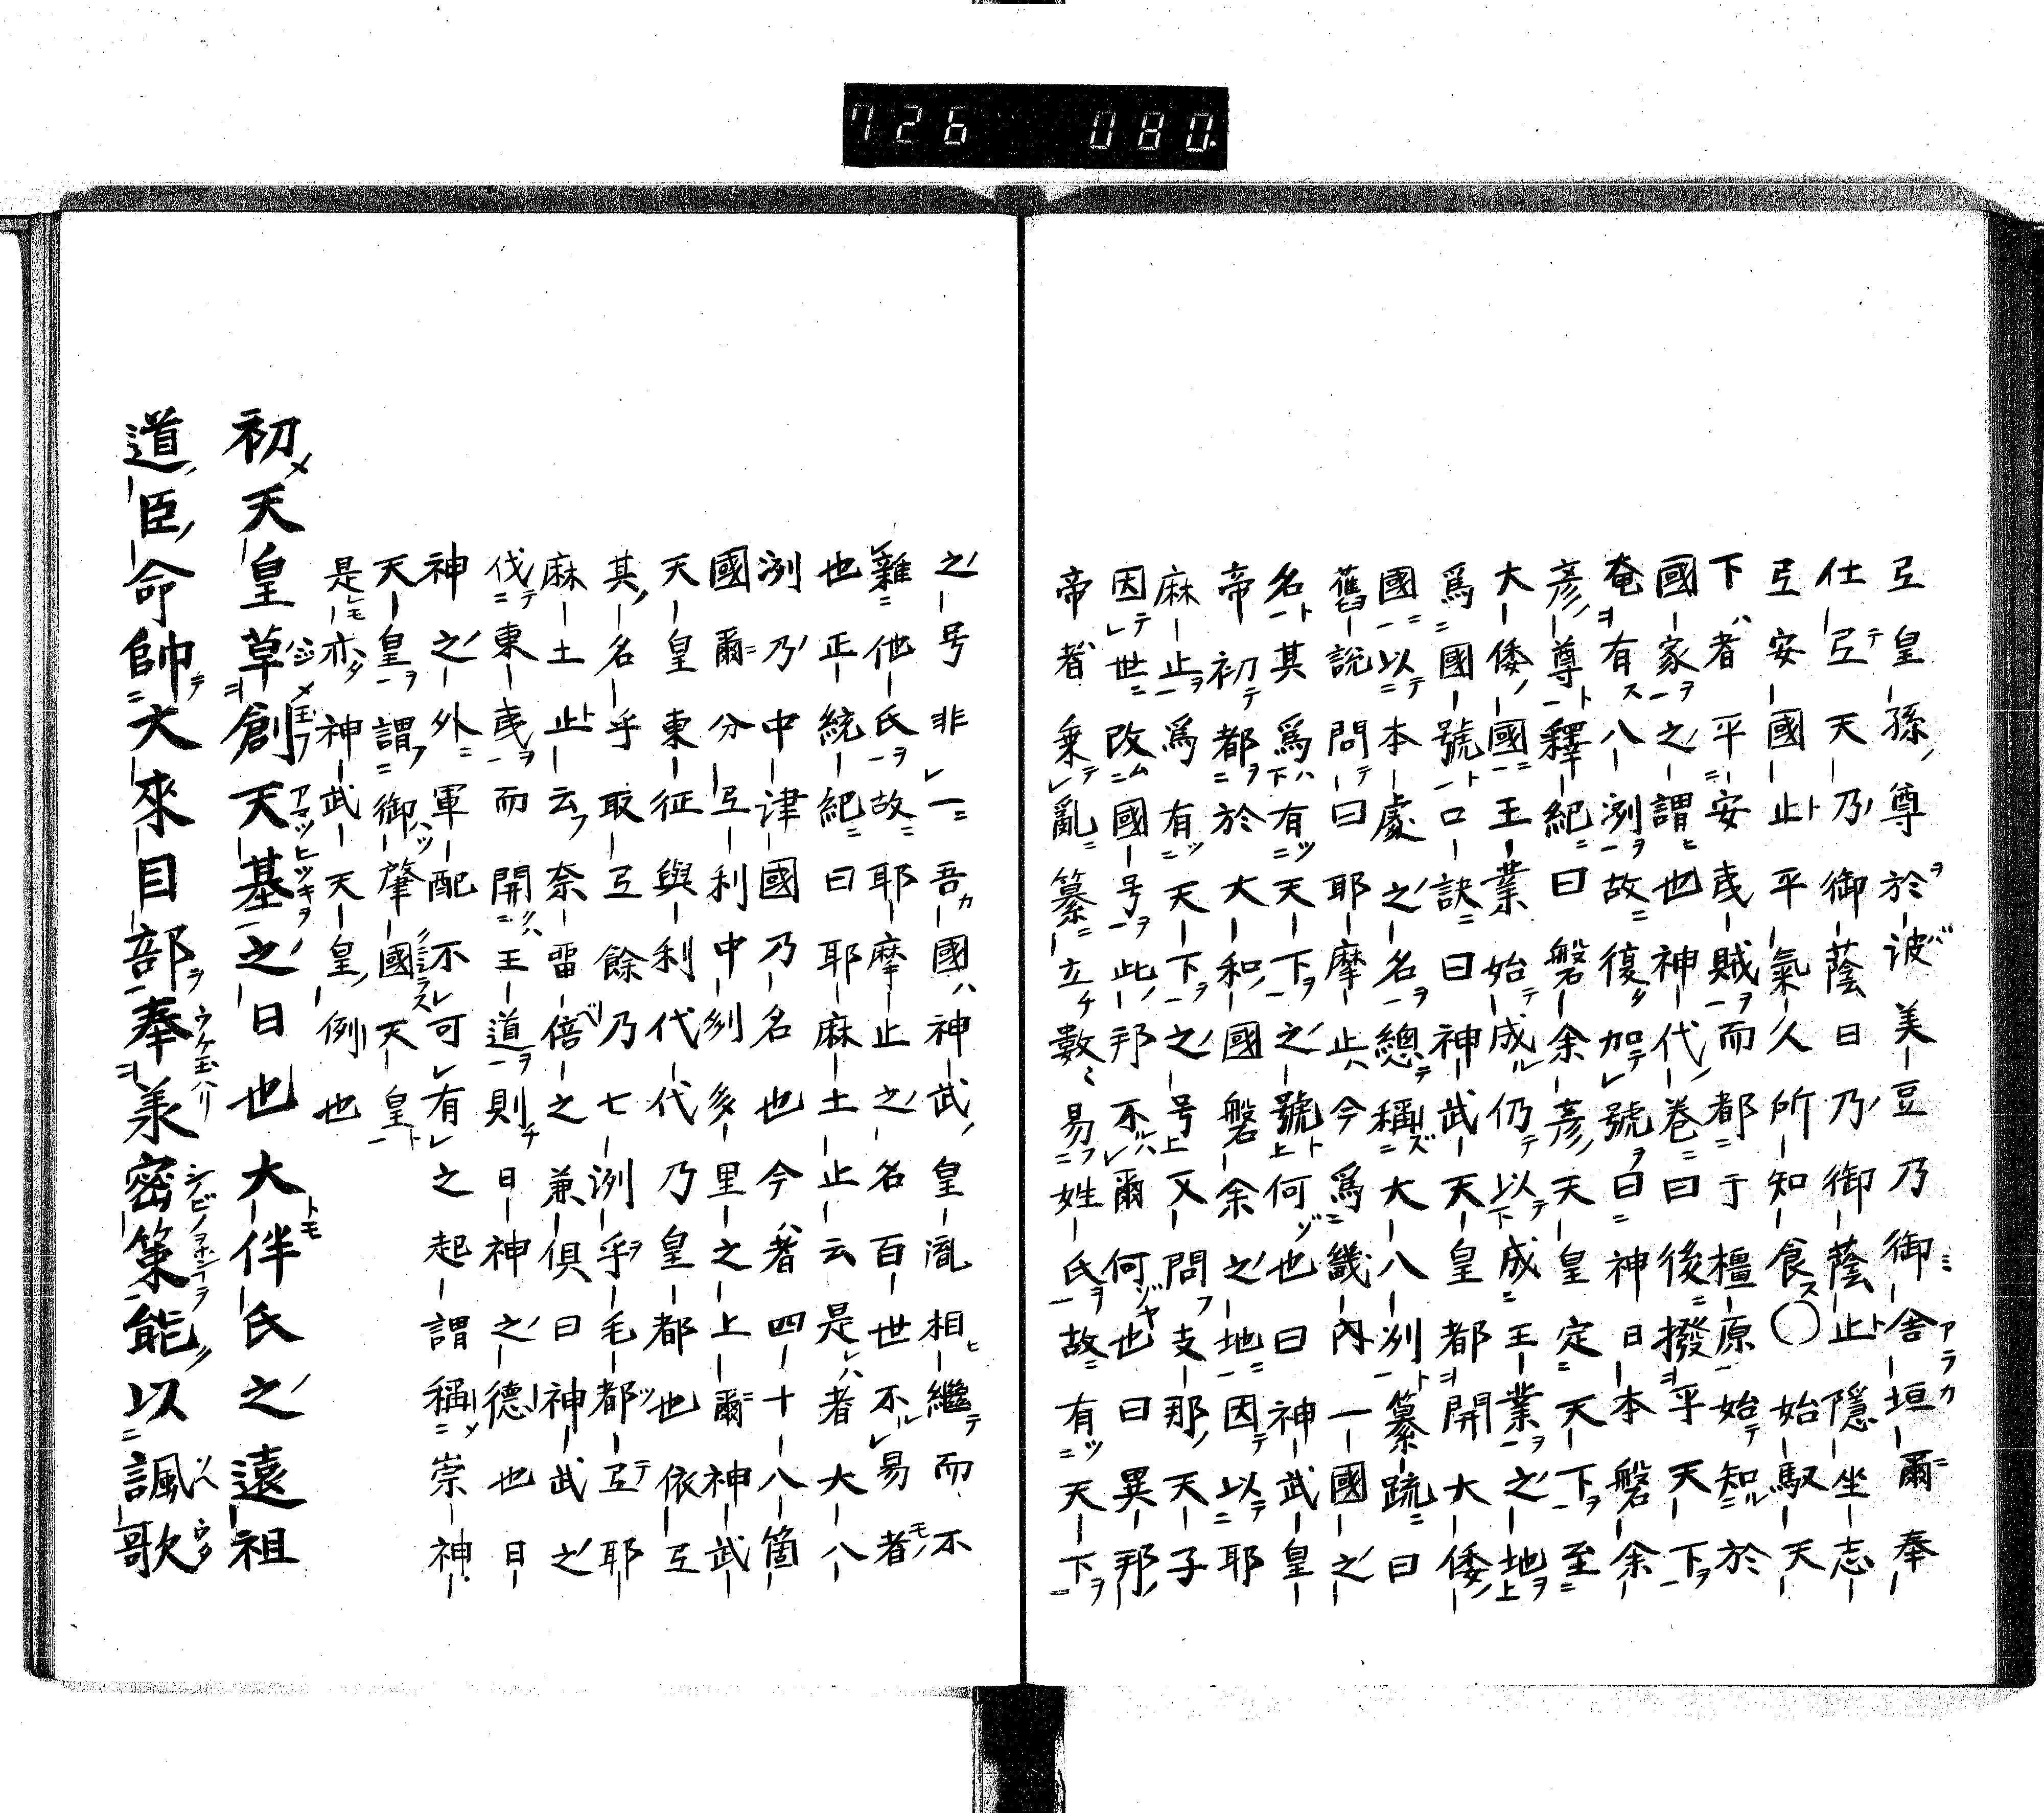 726 080
弖皇孫尊於波美豆乃御舎垣爾奉
仕弖天乃御蔭日乃御蔭止隠坐志
弖安國止平氣久所知食〇始馭天
下者平安㦮賊而都于橿原始知於
國家之謂也神代巻曰後撥平天下
奄有八洲故復加號曰神日本磐余
彦尊釋紀曰磐余彦天皇定天下至
大倭國王業始成仍以成王業之地
爲國號口訣曰神武天皇都開大倭
國以本處之名總稱大八洲纂疏曰
舊説問曰耶摩止今爲畿内一國之
名其爲有天下之號何也曰神武皇
帝初都於大和國磐余之地因以耶
麻止爲有天下之号又問支那天子
因世改國号此邦不爾何也曰異邦
帝者乗亂纂立數易姓氏故有天下
之号非一吾國神武皇胤相繼而不
雜他氏故耶摩止之名百世不易者
也正統紀曰耶麻土止云是者大八
洲乃中津國乃名也今着四十八箇
國爾分弖利中列多里之上爾神武
天皇東征與利代代乃皇都也依弖
其名乎取弖餘乃七洲乎毛都弖耶
麻土止云奈留倍之兼倶曰神武之
伐東㦮而開王道則日神之德也日
神之外軍配不可有之起謂稱崇神
天皇謂御肇國天皇
是亦神武天皇例也
初天皇草創天基之日也大伴氏之遠祖
道臣命帥大來目部奉羕密策能以諷歌